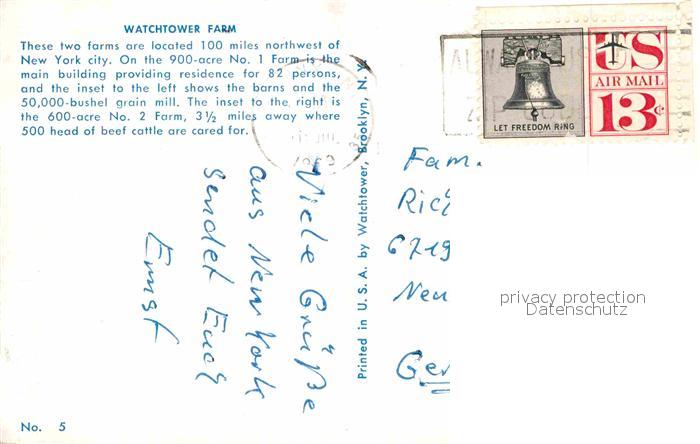 WATCHTOWER FARM
These two farms are located 100 miles northwest of
New York city. On the 900-acre No. 1 Farm is the
main building providing residence for 82 persons,
and the inset to the left shows the barns and the
50,000-bushel grain mill. The inset to the right is
the 600-acre No. 2 Farm, 3½ miles away where
500 head of beef cattle are cared for.
Viele Grüße
aus New York
sendet Euch
Ernst
No. 5
Printed in U.S.A. by Watchtower, Brooklyn, N.Y.
LET FREEDOM RING
US
AIR MAIL
13c
Fam.
6719
Neu
Ger
privacy protection
Datenschutz